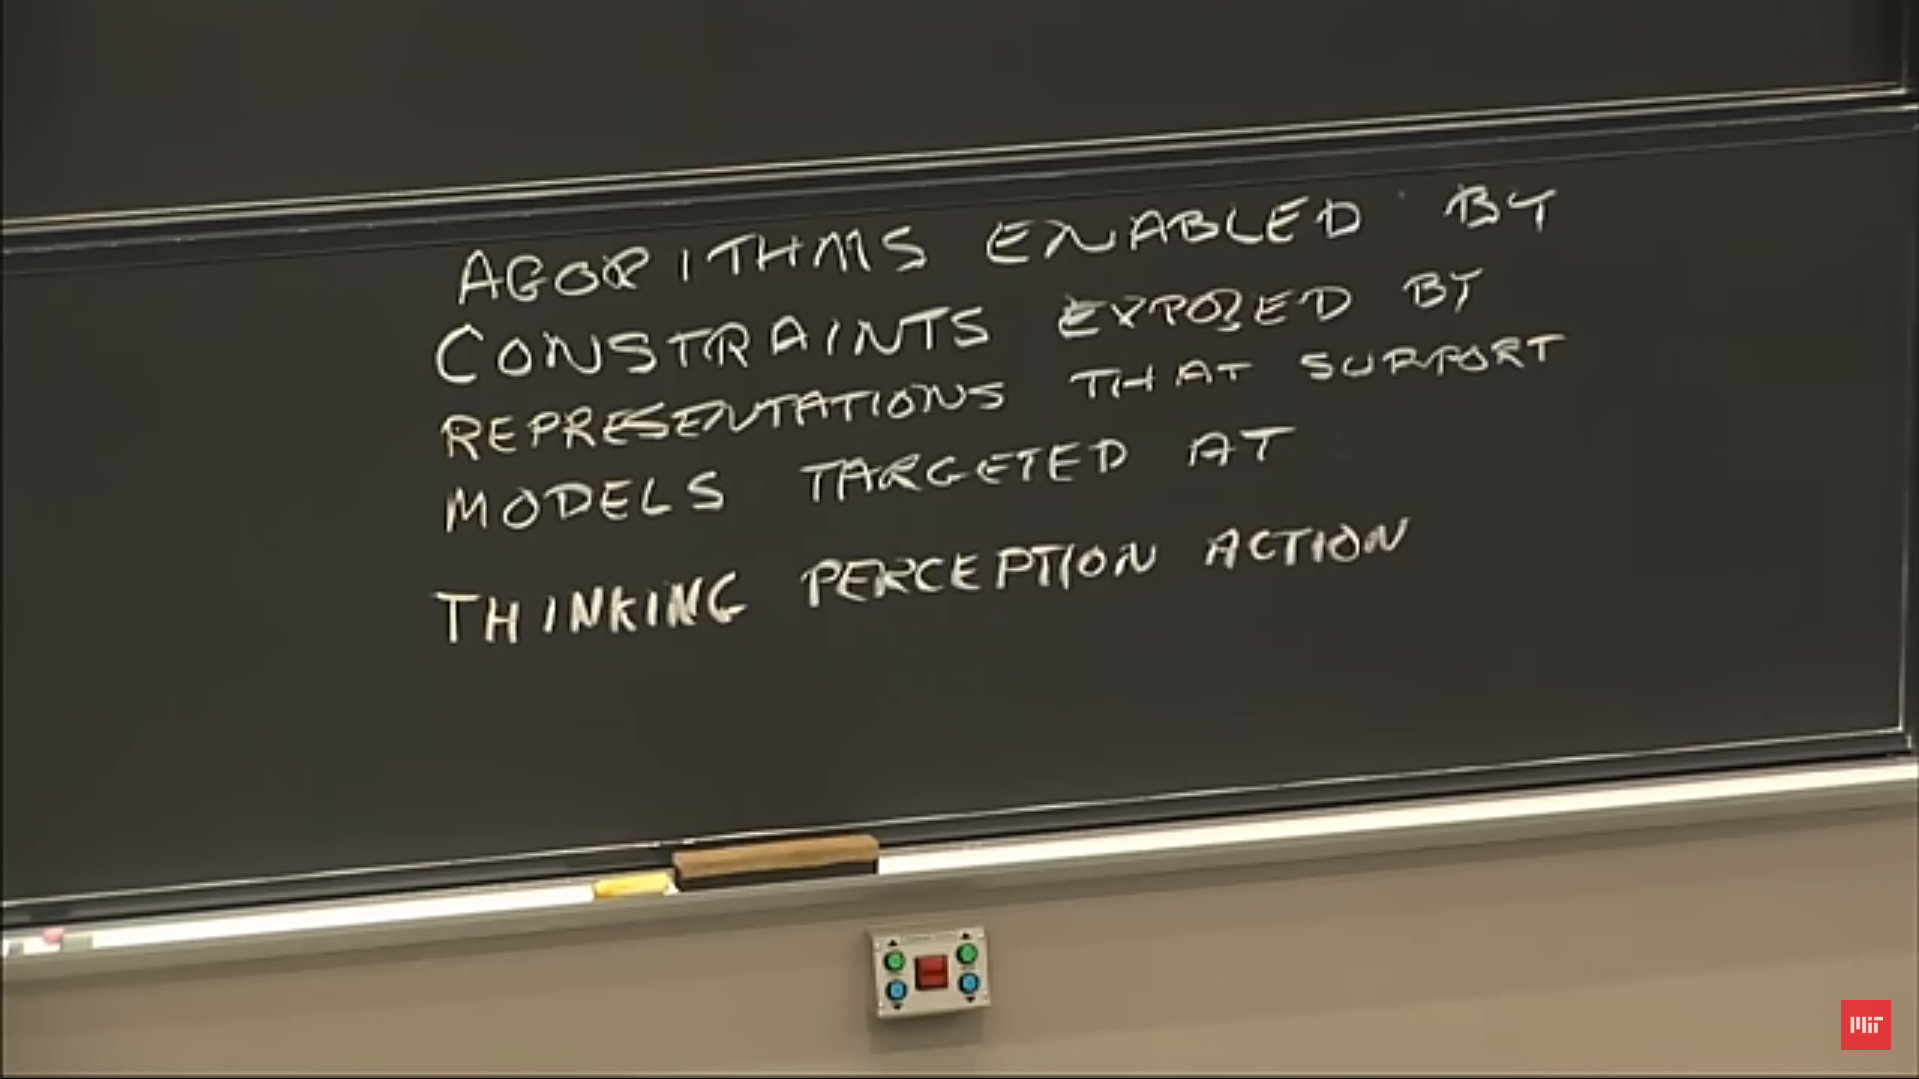 AGORITHMS ENABLED BY
CONSTRAINTS EXPOSED BY
REPRESENTATIONS THAT SUPPORT
MODELS TARGETED AT
THINKING PERCEPTION ACTION
MIT